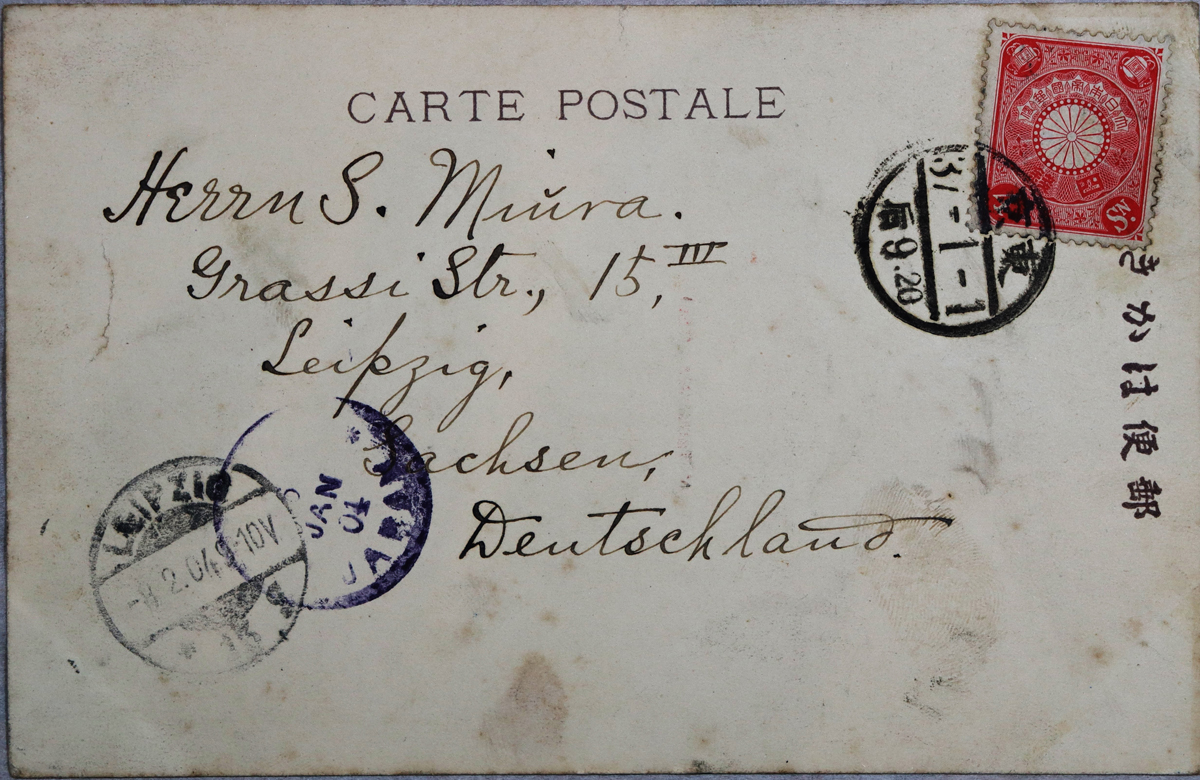 CARTE POSTALE
Herrn S. Miŭra.
Grassi Str., 15, III
Leipzig,
Sachsen,
Deutschland.
郵便はかき
東京
37-1-1
后9.20
LEIPZIG
2.04
-10V
* 13
JAN
04
JAPAN